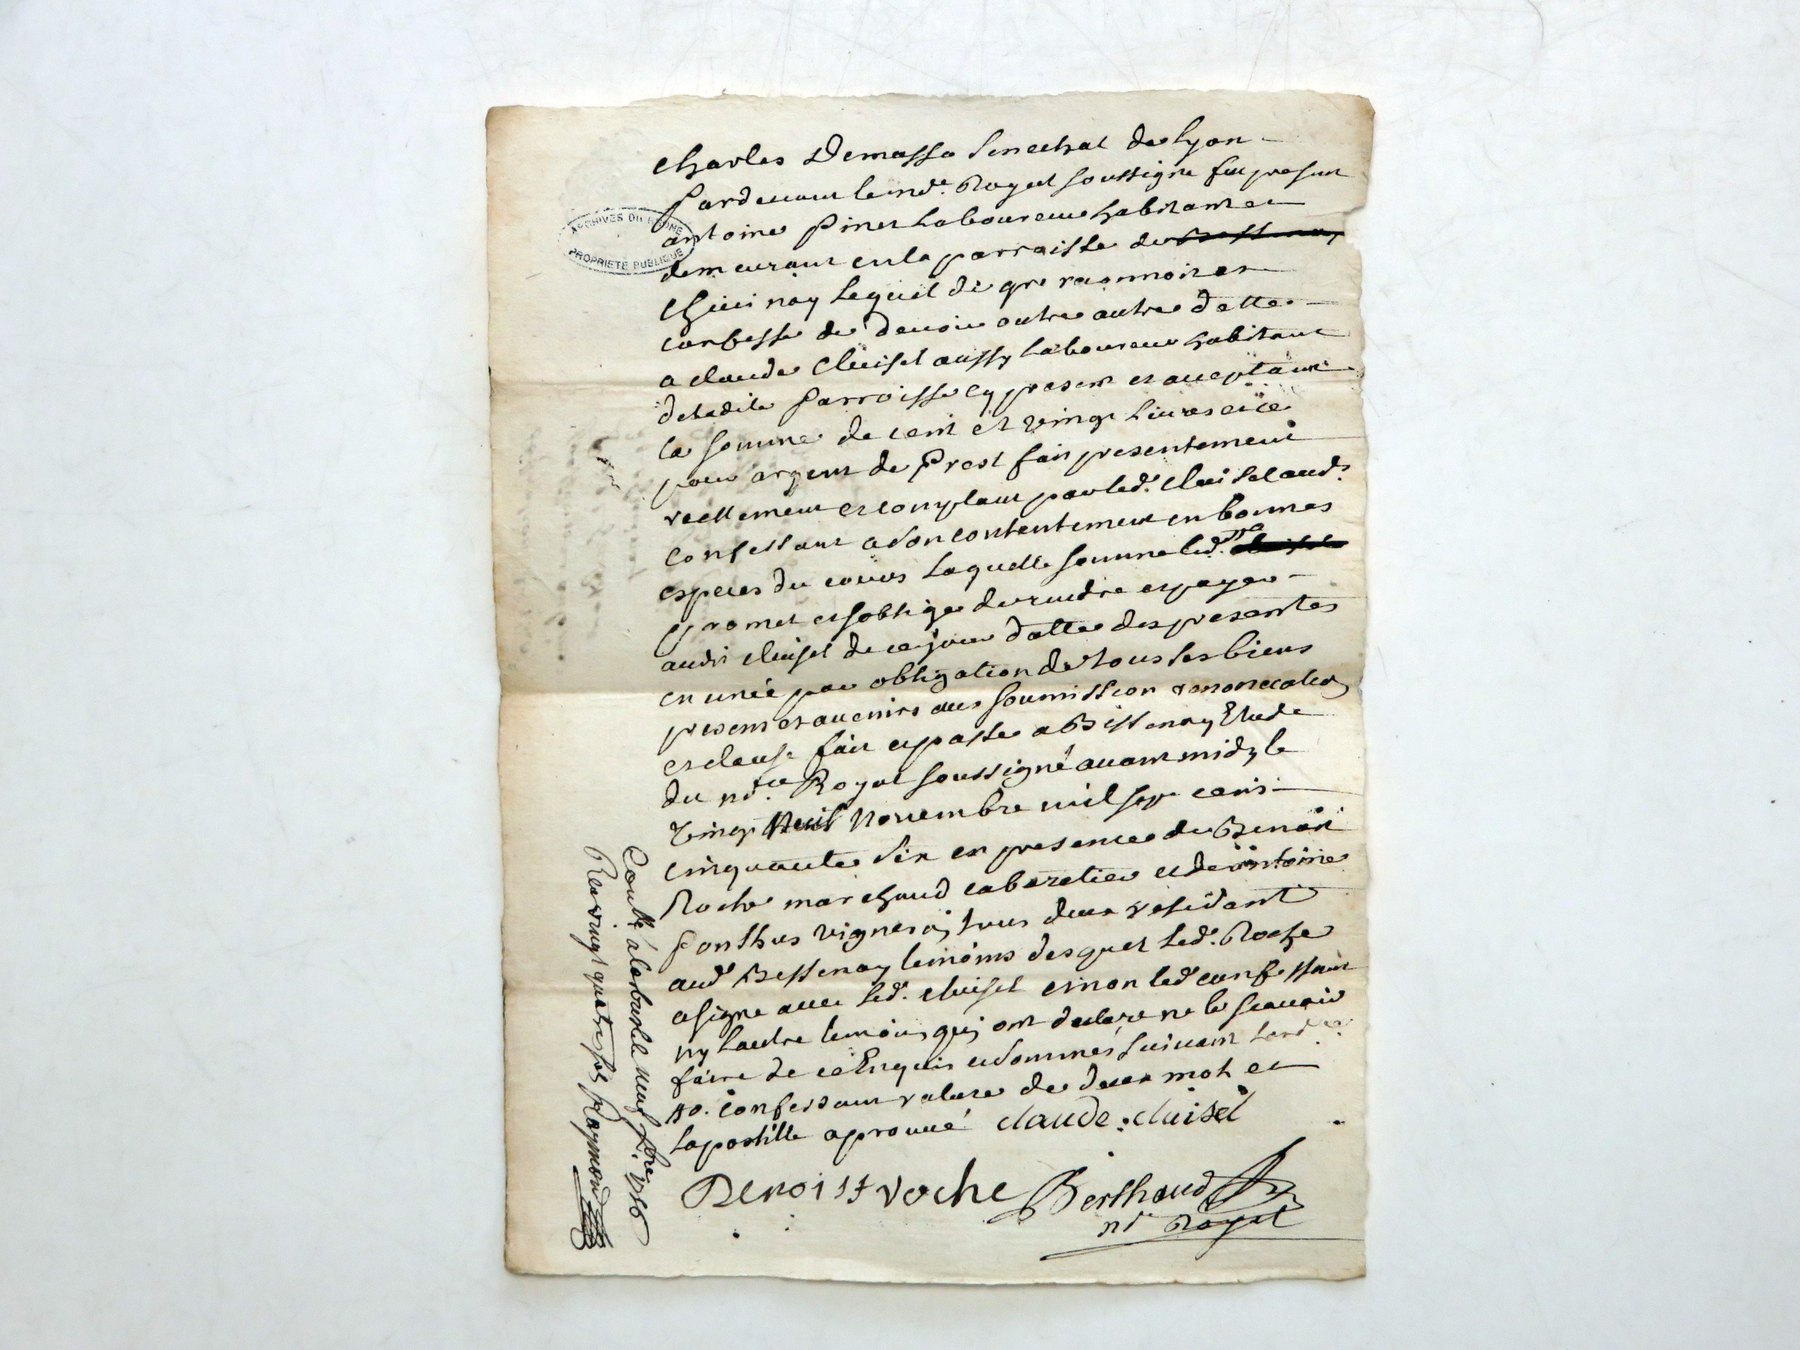 Charles Demasso Senechal de Lyon
Pardevant le nore. Royal soussigné fut present
antoine Pinet Laboureur habitant et
demeurant en la parroisse de Bessenay
Chevinay Lequel de gré reconnoit et
confesse de devoir outre autre dette
a claude Cluisel aussy Laboureur habitant
deladite parroisse cy present et acceptant
la somme de cent et vingt Livres et ce
pour argent de Prest fait presentement
reellement et comptant par led. Cluisel aud.
confessant a son contentement en bonnes
especes du cours Laquelle somme led.
promet et soblige de rendre et payer
audit cluisel de ce jour datte des presentes
en un par obligation de tous ses biens
present et avenirs avec soumission renonciation
et clause fait et passé a Bissenay Etude
du nore. Royal soussigné avant midy le
vingt neuf novembre mil sept cents
cinquante six en presence de Benoit
Roche marchand cabaretier et de antoine
Ponthus vigneron tous deux residant
aud. Bessenay temoins desquel led. Roche
a signé avec led. cluisel et non led. confessant
ny lautre temoin qui ont declaré ne le scavoir
faire de ce Enquis et sommés suivant lord.ce
confessant rature de deux mot et
lapostille aprouvé claude cluisel
Benoist roche Berthaud
nre. Royal
Conllé à Larbresle neuf xbre 1756
Reçu vingt quatre sols Raymond
ARCHIVES DU RHÔNE
PROPRIÉTÉ PUBLIQUE